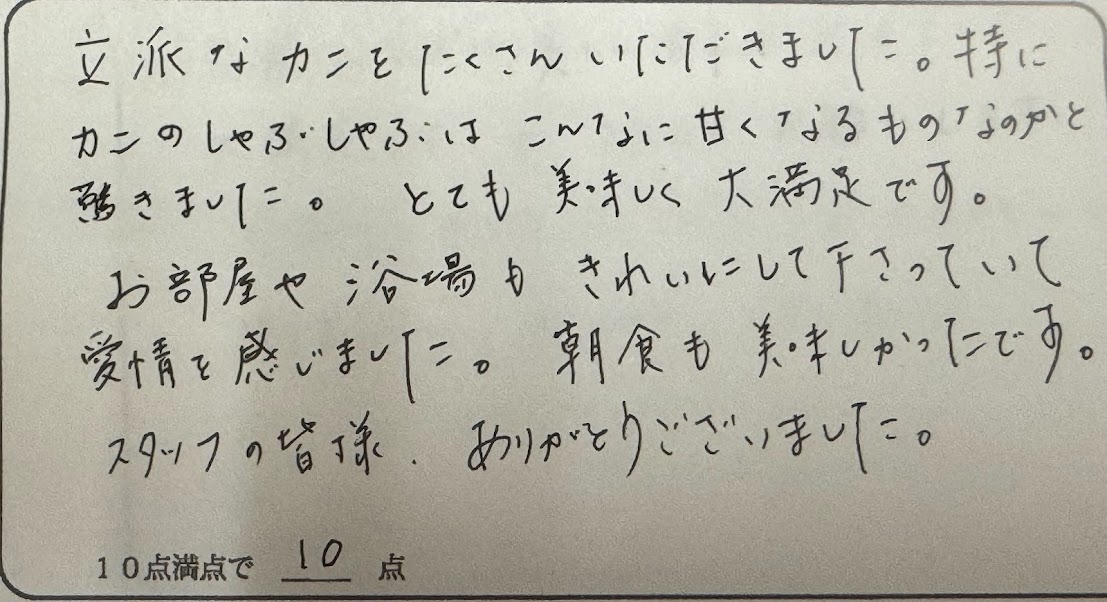 立派なカニをたくさんいただきました。特に
カニのしゃぶしゃぶはこんなに甘くなるものなのかと
驚きました。 とても美味しく大満足です。
お部屋や浴場もきれいにして下さっていて
愛情を感じました。 朝食も美味しかったです。
スタッフの皆様、ありがとうございました。
10点満点で 10 点